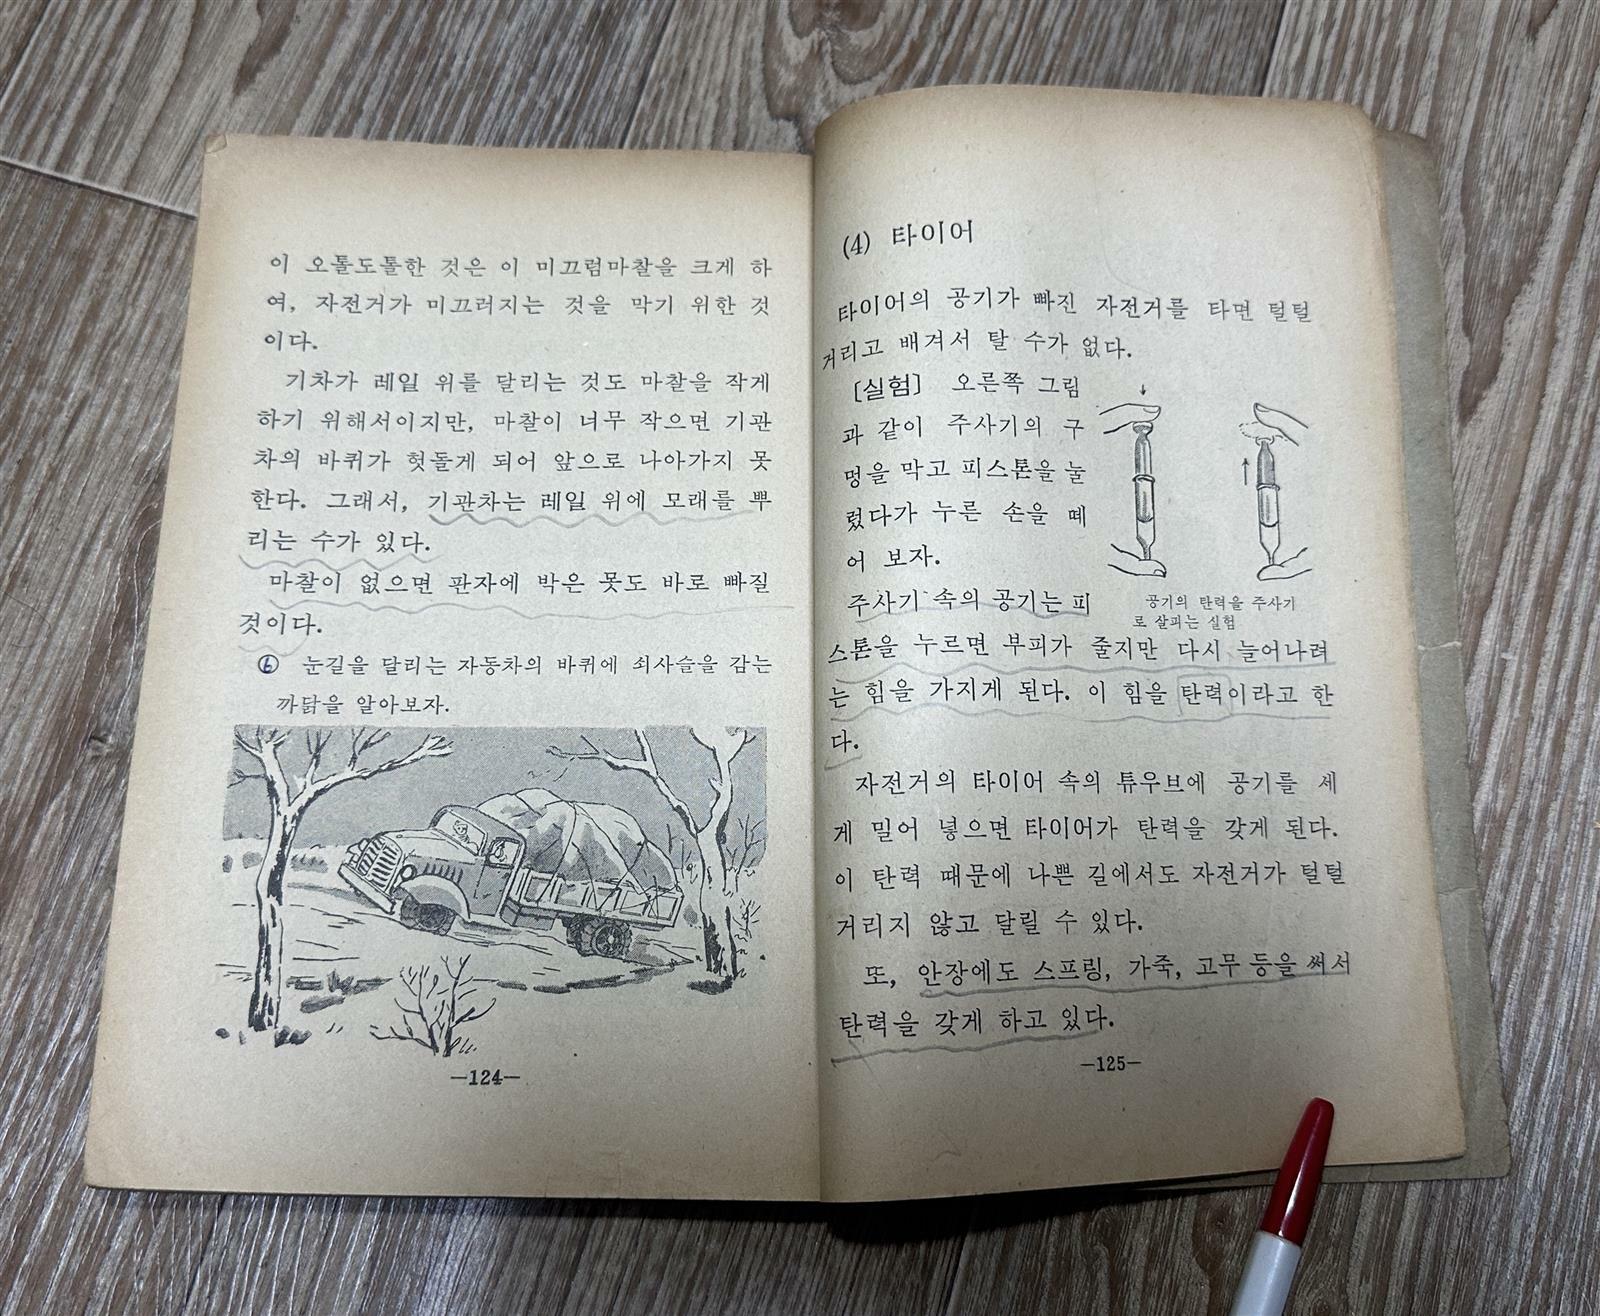 이 오톨도톨한 것은 이 미끄럼마찰을 크게 하
여, 자전거가 미끄러지는 것을 막기 위한 것
이다.
기차가 레일 위를 달리는 것도 마찰을 작게
하기 위해서이지만, 마찰이 너무 작으면 기관
차의 바퀴가 헛돌게 되어 앞으로 나아가지 못
한다. 그래서, 기관차는 레일 위에 모래를 뿌
리는 수가 있다.
마찰이 없으면 판자에 박은 못도 바로 빠질
것이다.
⑥ 눈길을 달리는 자동차의 바퀴에 쇠사슬을 감는
까닭을 알아보자.
—124—
(4) 타이어
타이어의 공기가 빠진 자전거를 타면 털털
거리고 배겨서 탈 수가 없다.
[실험] 오른쪽 그림
과 같이 주사기의 구
멍을 막고 피스톤을 눌
렀다가 누른 손을 떼
어 보자.
주사기 속의 공기는 피
공기의 탄력을 주사기
로 살피는 실험
스톤을 누르면 부피가 줄지만 다시 늘어나려
는 힘을 가지게 된다. 이 힘을 탄력이라고 한
다.
자전거의 타이어 속의 튜우브에 공기를 세
게 밀어 넣으면 타이어가 탄력을 갖게 된다.
이 탄력 때문에 나쁜 길에서도 자전거가 털털
거리지 않고 달릴 수 있다.
또, 안장에도 스프링, 가죽, 고무 등을 써서
탄력을 갖게 하고 있다.
—125—